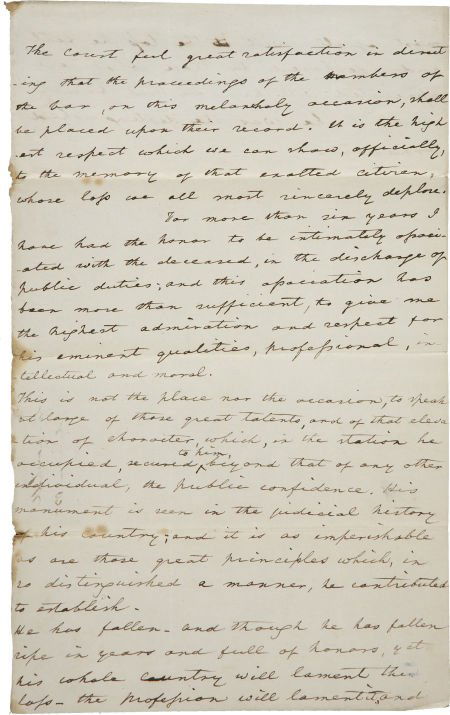 The court feel great satisfaction in direct
-ing that the proceedings of the members of
the bar, on this melancholy occasion, shall
be placed upon their record. It is the high
-est respect which we can show, officially,
to the memory of that exalted citizen,
whose loss we all most sincerely deplore.
For more than six years I
have had the honor to be intimately associ-
-ated with the deceased, in the discharge of
public duties; and this association has
been more than sufficient, to give me
the highest admiration and respect for
his eminent qualities, professional, in
tellectual and moral.
This is not the place nor the occasion, to speak
at large of those great talents, and of that eleva
tion of character, which, in the station he
occupied, secured to him, beyond that of any other
individual, the public confidence. His
monument is seen in the judicial history
of his country; and it is as imperishable
as are those great principles which, in
so distinguished a manner, he contributed
to establish.
He has fallen - and though he has fallen
ripe in years and full of honors, yet
his whole country will lament the
loss - the profession will lament it, and